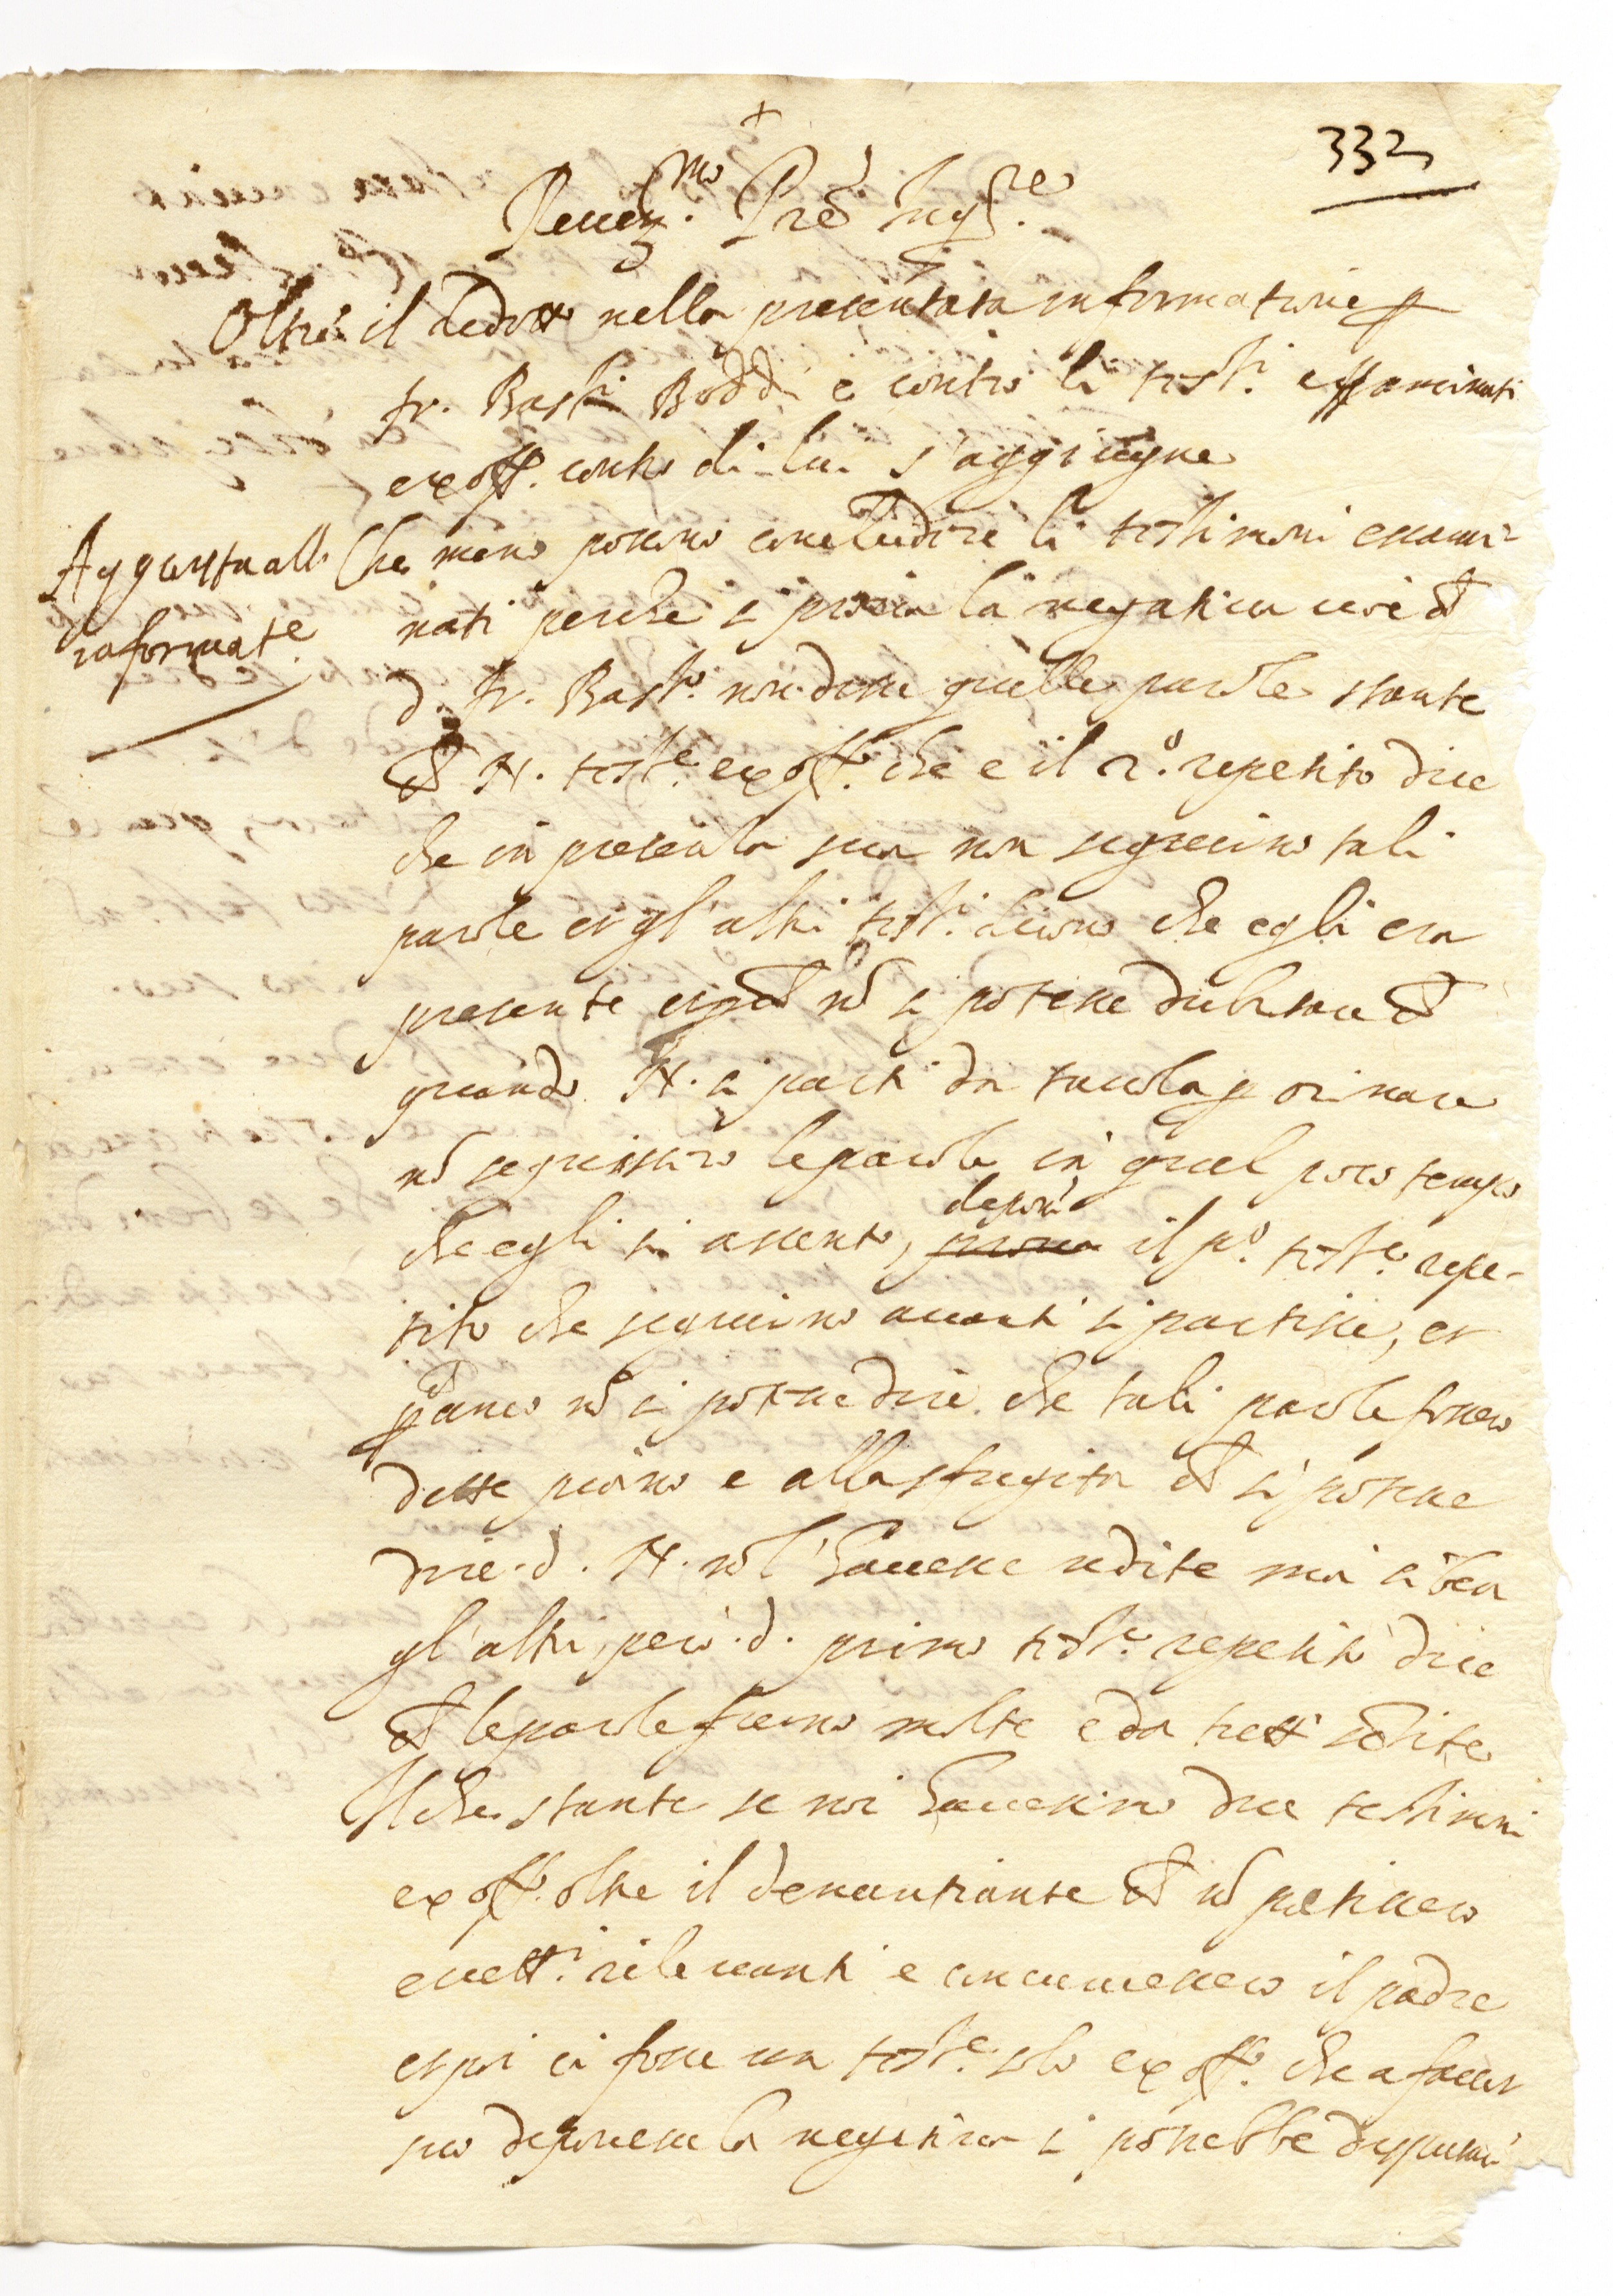 +
332
Reuer.mo Pre Inq.re
Oltre il dedotto nella presentata informatione p
fr. Bast. Boddi e contro li test.i essaminati
ex off.o contro di lui s'aggiugne
Aggiunta all
informat.e
Che meno possono concludere li testimoni exami-
nati perche si proua la negatiua cioè che
d. fr. Bast.o non dicesse quelle parole stante
che N. test.e ex off.o che e il 2.o repetito dice
che in presenza sua non seguirno tali
parole et gl'altri test.i dicono che egli era
presente et che nō si potesse dubitare che
quando N. si parti da tauola p orinare
nō seguissero le parole in quel poco tempo
che egli si assentò, depone il p.o test.e repe-
tito che seguirno auanti si partisse, et
p anco nō si potesse dire che tali parole fossero
dette piano e alla sfugita che si potesse
dire d. N. nō l'hauesse udite ma si ben
gl'altri, però d. primo test.e repetito dice
che le parole furno molte e da tutti udite
Il che stante se noi hauessimo due testimoni
ex off.o oltre il denuntiante che nō patissero
ecett.i rileuanti e conuincessero il padre
et poi ci fosse un test.e solo ex off.o che a fauor
suo deponesse la negatiua si potrebbe disputar